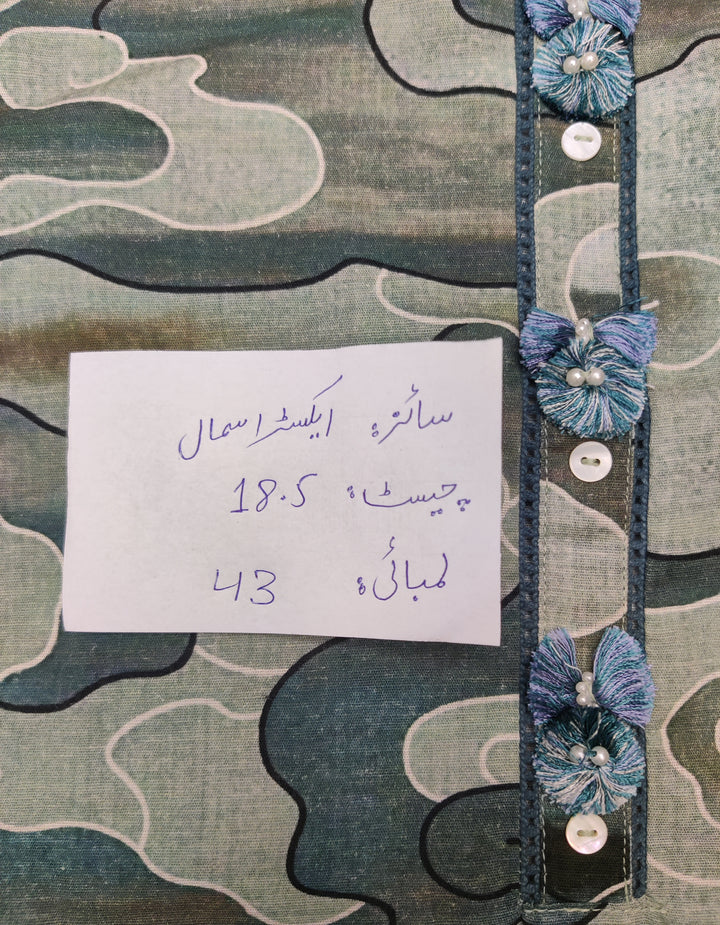 سائز: ایکسٹرا سمال
چیسٹ: 18.5
لمبائی: 43